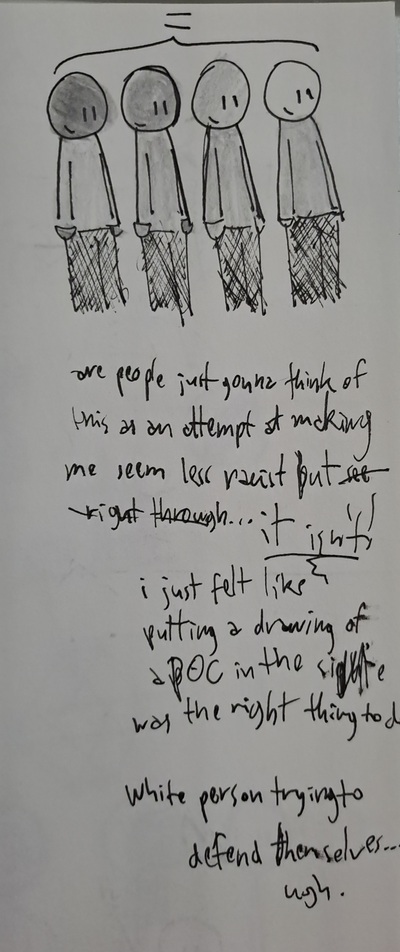 =
are people just gonna think of
this as an attempt at making
me seem less racist but see
right through... it isn't!!
i just felt like
putting a drawing of
a POC in the
was the right thing to d
White person trying to
defend themselves...
ugh.